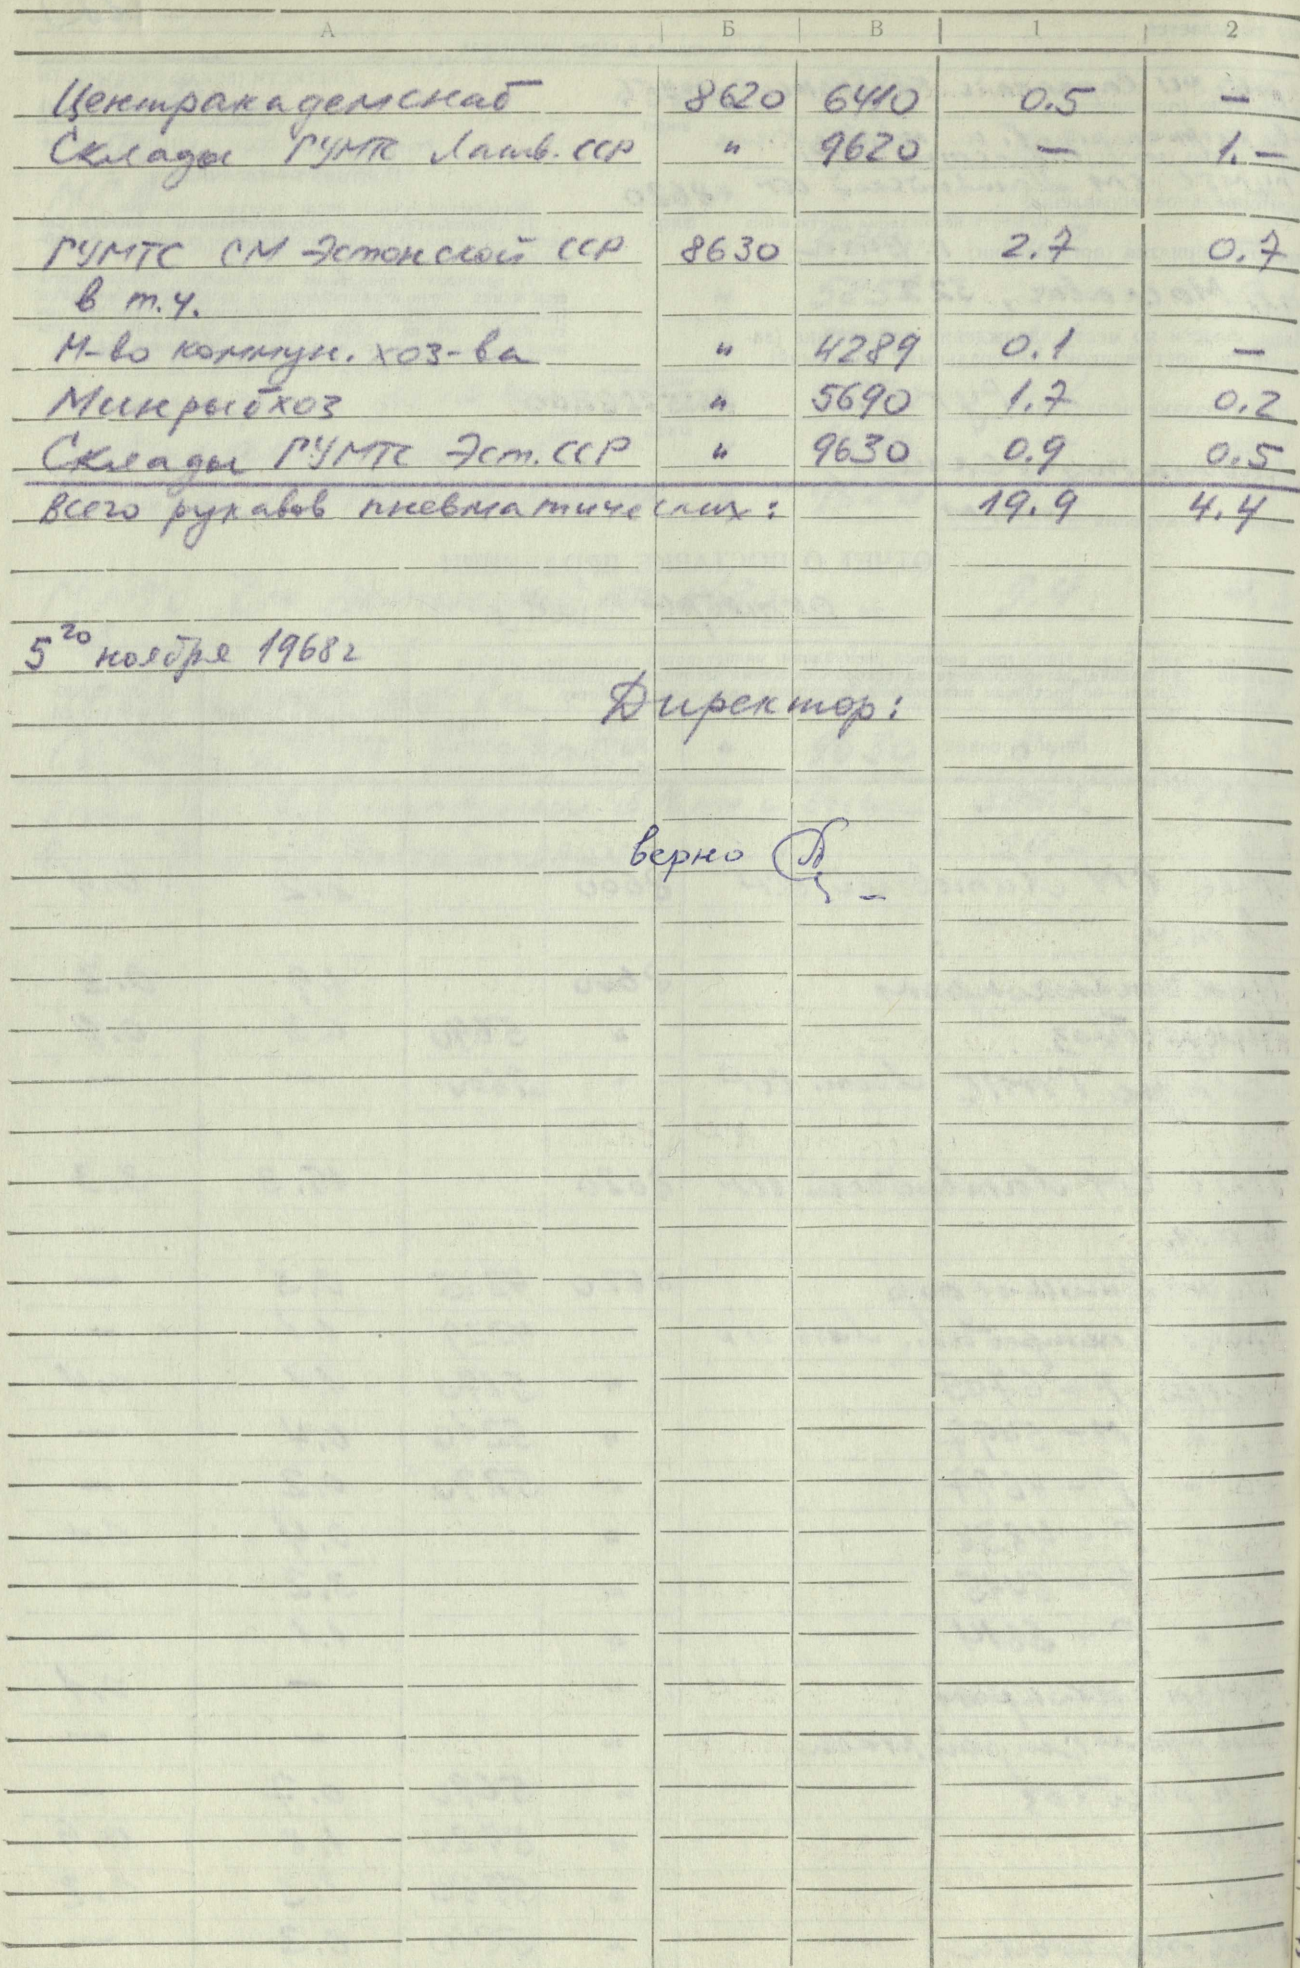 А Б В 1 2
Центракадемснаб 8620 6410 0.5 —
Склады ГУМТС Латв. ССР " 9620 — 1.—
ГУМТС СМ Эстонской ССР 8630 2.7 0.7
в т.ч.
М-во коммун. хоз-ва " 4289 0.1 —
Минрыбхоз " 5690 1.7 0.2
Склады ГУМТС Эст. ССР " 9630 0.9 0.5
Всего рукавов пневматических: 19.9 4.4
5го ноября 1968г
Директор:
верно